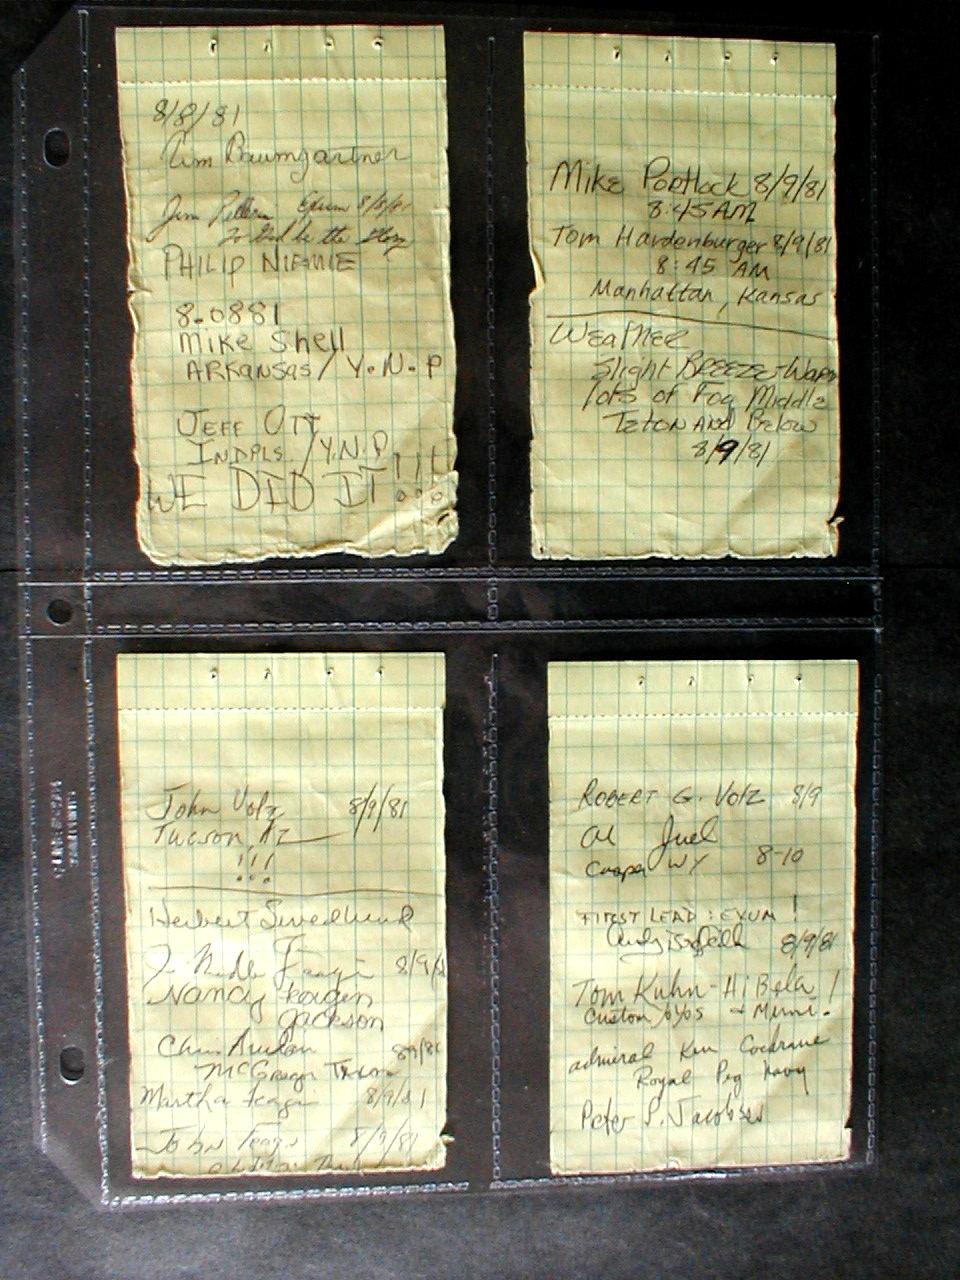 8/8/81
Tim Baumgartner
Jim Exum 8/8/81
To God be the glory
PHILIP NIEMIE
8.0881
Mike Shell
ARKANSAS / Y.N.P
JEFF OTT
INDPLS / Y.N.P
WE DID IT!!!
Mike Portlock 8/9/81
8:45 AM
Tom Hardenburger 8/9/81
8:45 AM
Manhattan, Kansas
Weather
Slight BREEZE-Warm
lots of Fog Middle
Teton AND Below
8/9/81
John Volz 8/9/81
Tucson, AZ
!!!
Herbert
8/9/8
Nancy Feagin
Jackson
8/9/81
McGregor Texas
Martha Feagin 8/9/81
John Feagin 8/9/81
ROBERT G. Volz 8/9
Al Juel
Casper WY 8-10
FIRST LEAD: EXUM!
8/9/81
Tom Kuhn - Hi Bela!
Custom yoyos + Mimi.
admiral Ken Cochrane
Royal Peg Navy
Peter S. Jacobsen